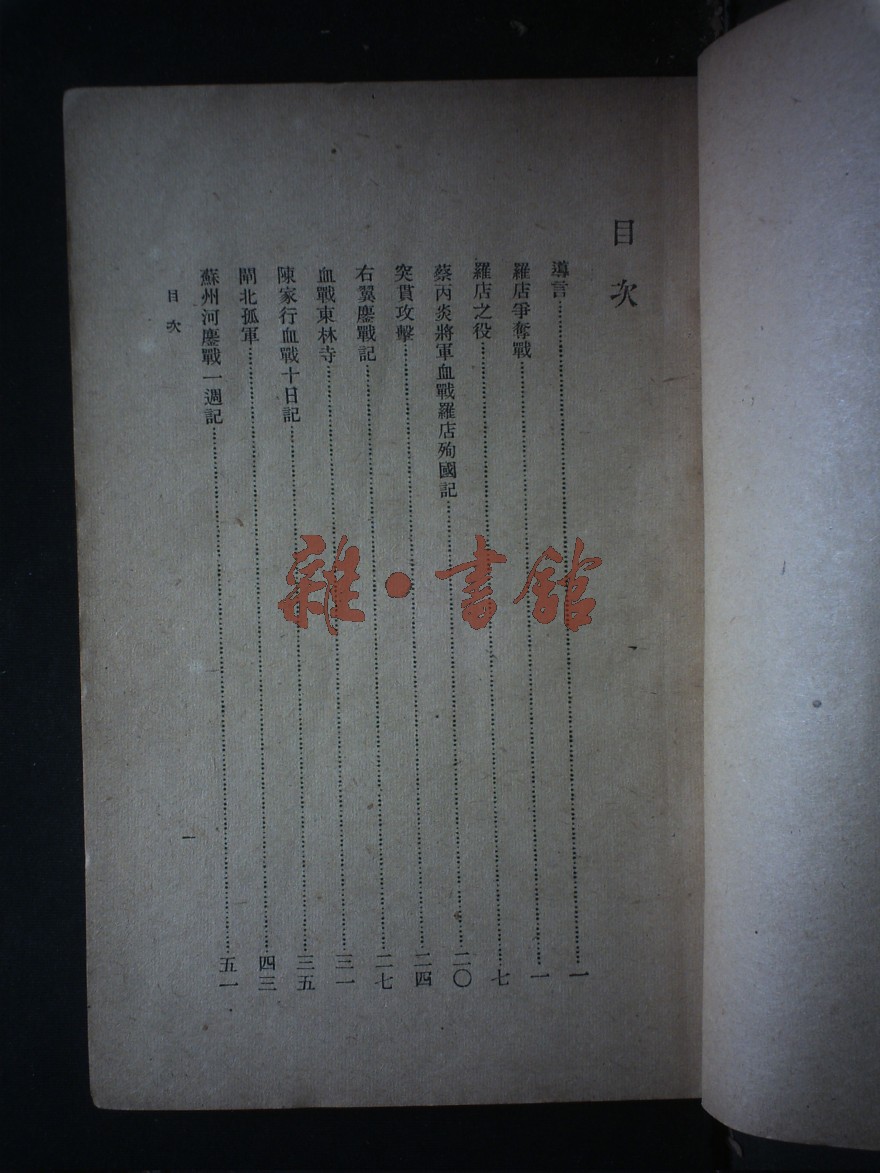 目次
導言……一
羅店爭奪戰……一
羅店之役……七
蔡丙炎將軍血戰羅店殉國記……二〇
突貫攻擊……二四
右翼鏖戰記……二七
血戰東林寺……三一
陳家行血戰十日記……三五
閘北孤軍……四三
蘇州河鏖戰一週記……五一
目次
一
雜·書館